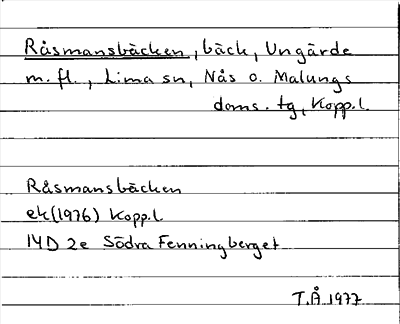 Råsmansbäcken, bäck, Ungärde
m.fl., Lima sn, Nås o. Malungs
doms. tg, Kopp.l.
Råsmansbäcken
ek(1976) Kopp.l
14D 2e Södra Fenningberget
T.Å 1977